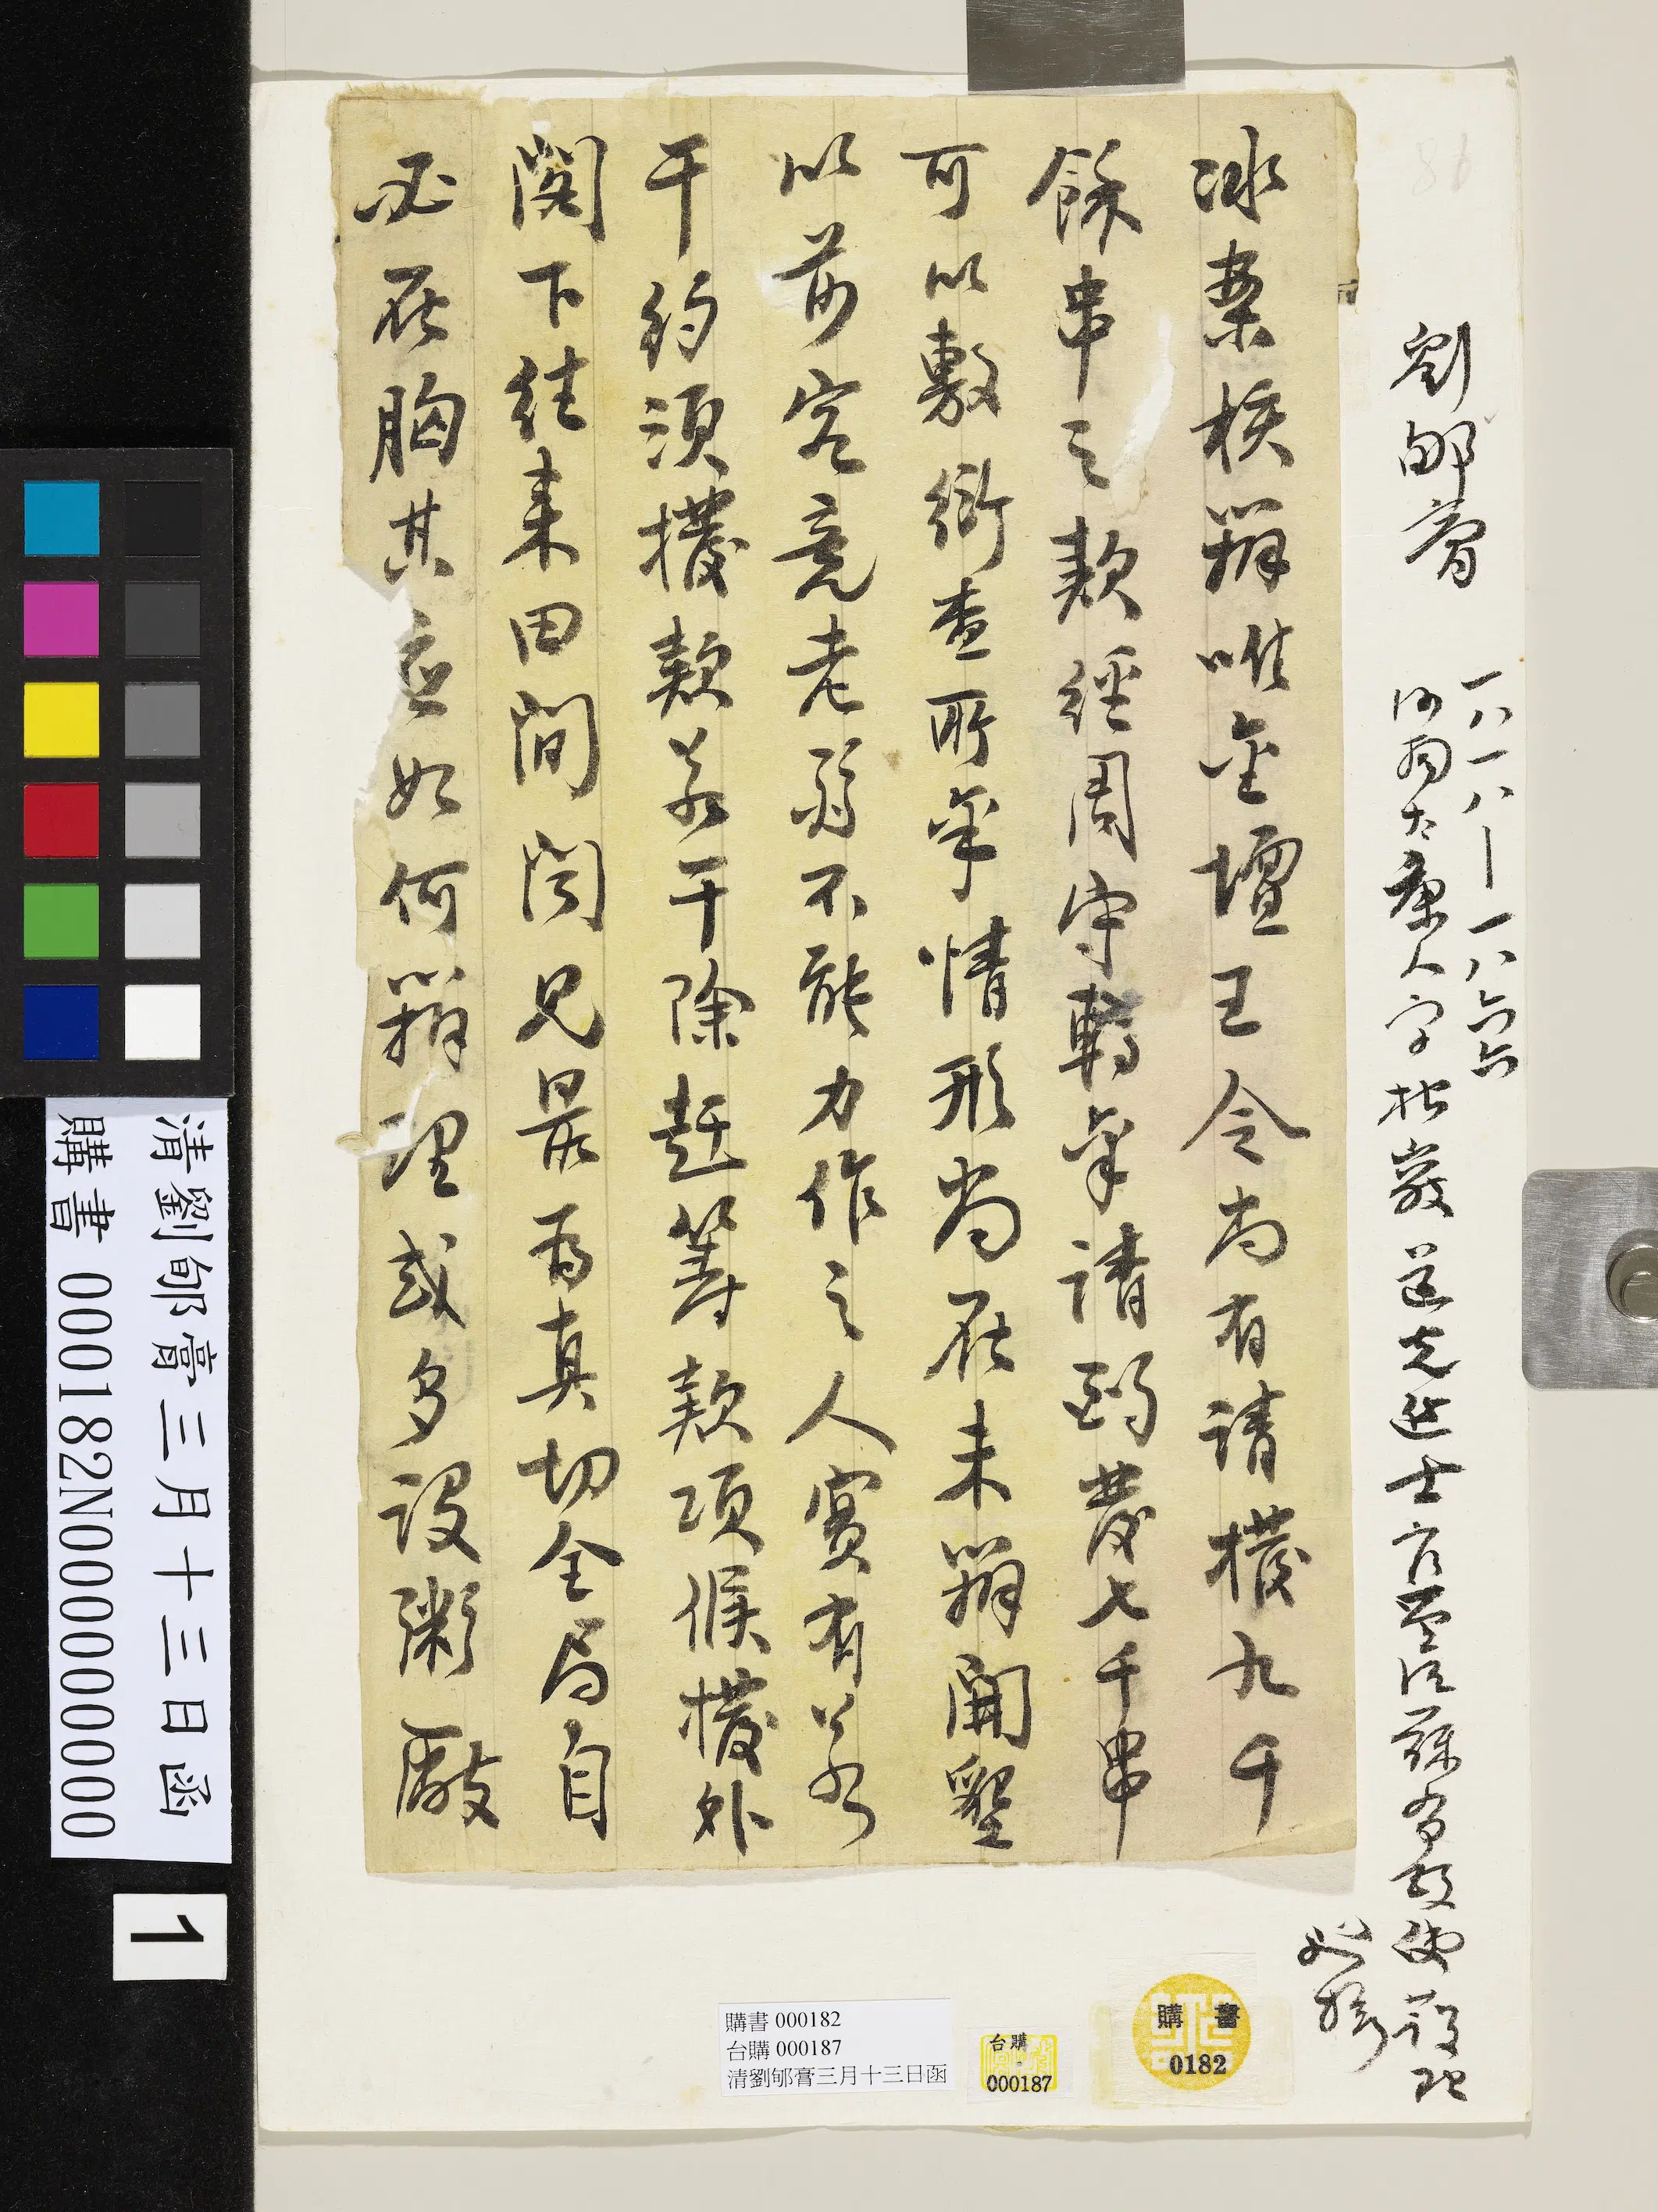 劉郇膏 一八一八—一八六六
河南太康人字松巖道光進士官至江蘇布政使護理
巡撫
冰案核辦唯金壇王令尚有請撥九千
餘串之款經周守轉稟請酌發七千串
可以敷衍查所稟情形尚在未辦開墾
以前究竟老弱不能力作之人實有若
干約須撥款若干除趕籌款項候撥外
閣下往來田間聞見最為真切全局自
必在胸其應如何辦理或多設粥廠
清劉郇膏三月十三日函
購書 000182N000000000
1
購書 000182
台購 000187
清劉郇膏三月十三日函
台購
000187
購書
0182